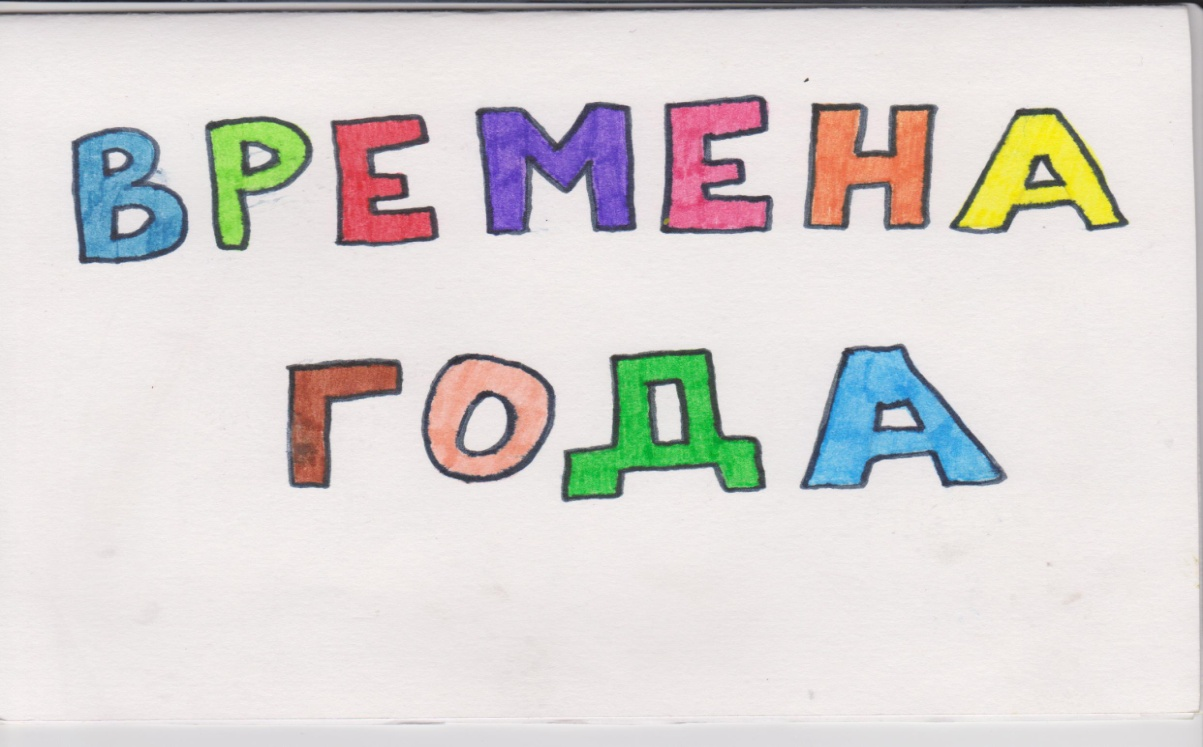 ВРЕМЕНА
ГОДА